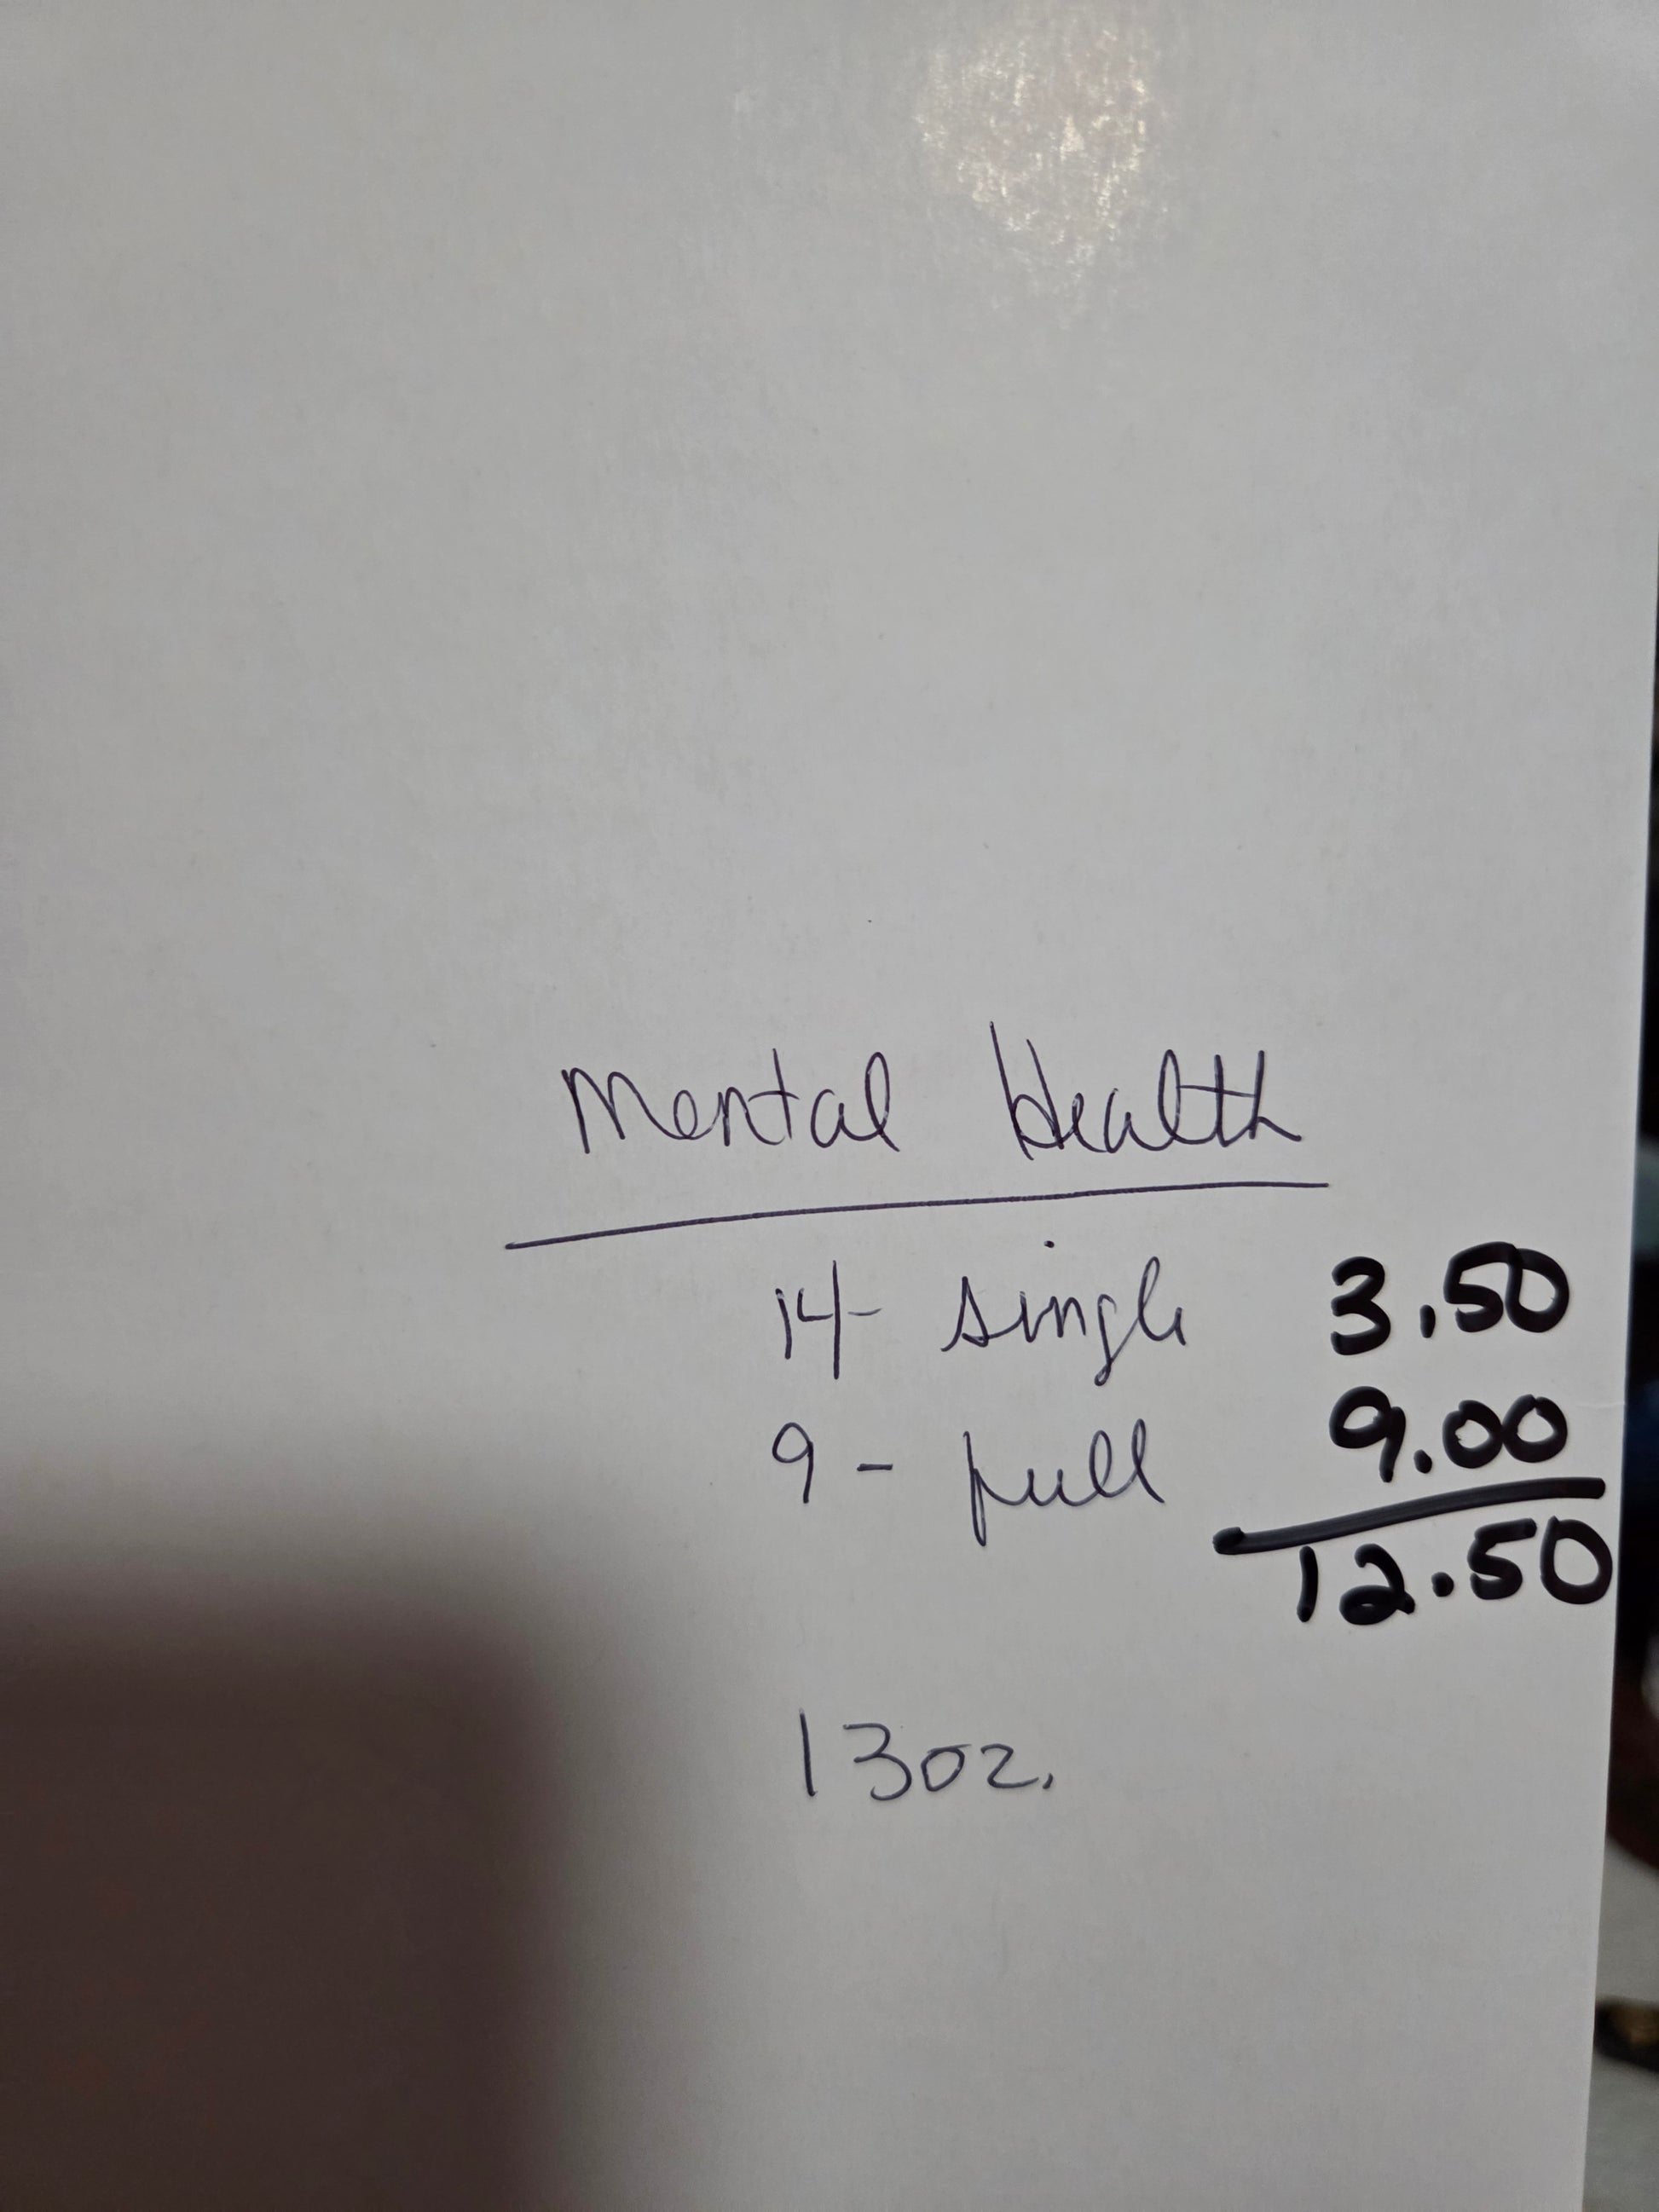 Mental Health
14- single 3.50
9 - full 9.00
12.50
13oz.